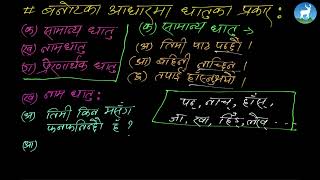 # बनोटका आधारमा धातुका प्रकार :
(क) सामान्य धातु
(ख) नामधातु
(ग) प्रेरणार्थक धातु
(क) सामान्य धातु →
(अ) तिमी पाठ पढ्छौ ।
(आ) बहिनी नाच्छिन् ।
(इ) तपाईं हाँस्नुभयो ।
(ख) नाम धातु :
(अ) तिमी किन मसँग
फनफनिन्छौ हँ ?
(आ)
पढ्, नाच्, हाँस्,
जा, खा, हिँड्, लेख् ...